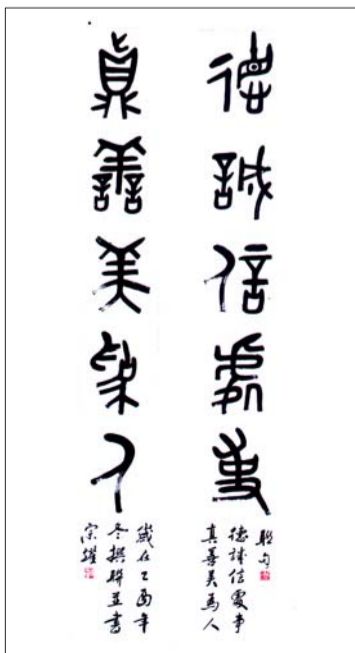 德誠信處事
真善美為人
聯句
德誠信處事
真善美為人
歲在乙酉年
冬撰聯並書
宗耀